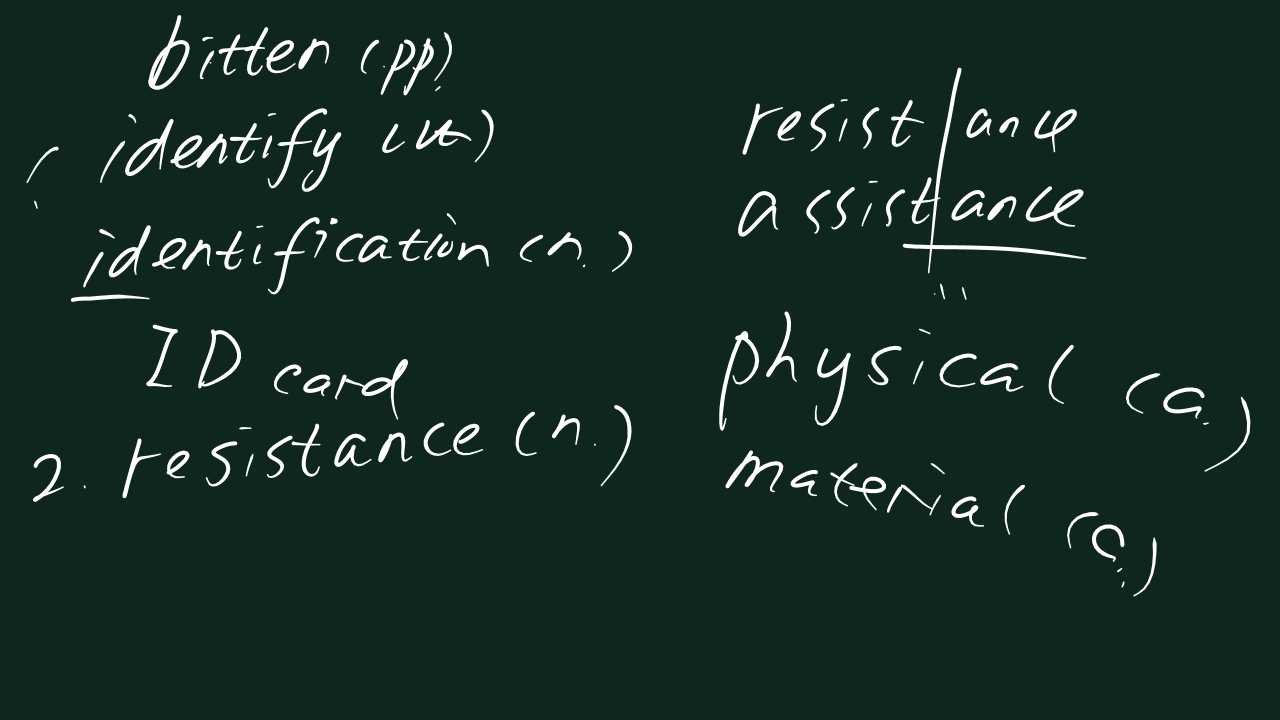 bitten (pp.)
identify (vt)
identification (n.)
ID card
2. resistance (n.)
resist ance
assistance
physical (a.)
material (a.)